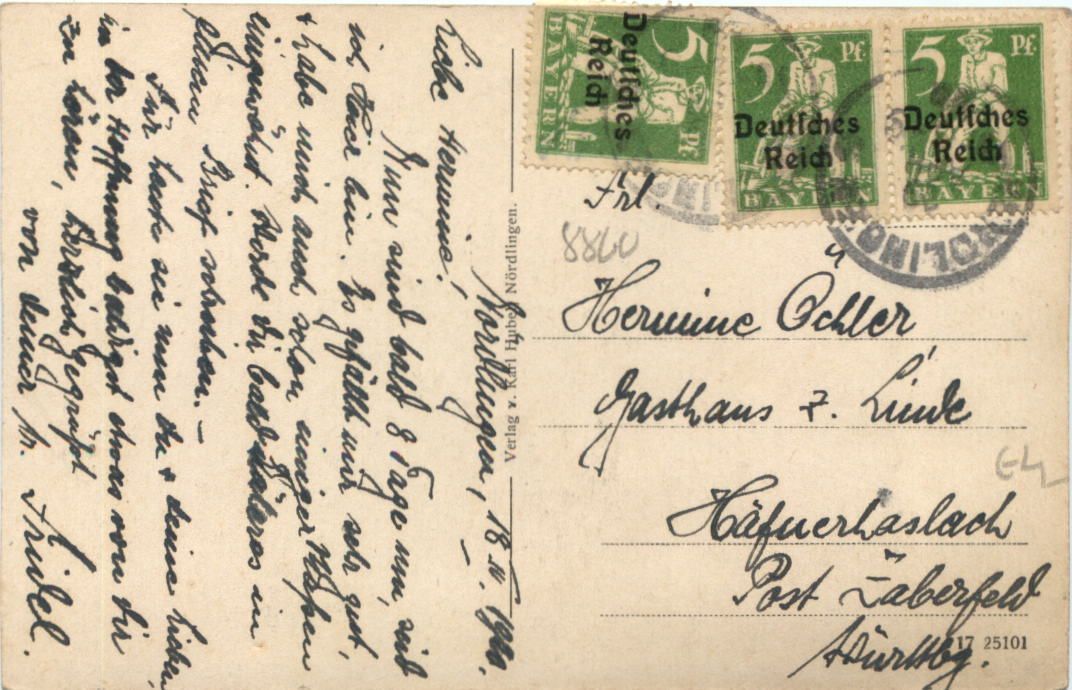 Nördlingen, 18. IV. 1920.
Liebe Hermine!
Nun sind bald 8 Tage um, seit
ich hier bin. Es gefällt mir sehr gut,
+ habe mich auch schon einigermaßen
eingewöhnt. Werde Dir bald Näheres in
einem Brief schreiben. —
Für heute sei nun du + deine Lieben
in der Hoffnung baldigst etwas von Dir
zu hören, herzlich gegrüßt
von deiner
Friedel.
Verlag v. Karl Huber, Nördlingen.
5 Pf.
Deutsches
Reich
BAYERN
5 Pf.
Deutsches
Reich
BAYERN
5 Pf.
Deutsches
Reich
BAYERN
Frl.
8860
Hermine Oehler
Gasthaus z. Linde
Häfnerhaslach
Post Zaberfeld
Württbg.
17 25101